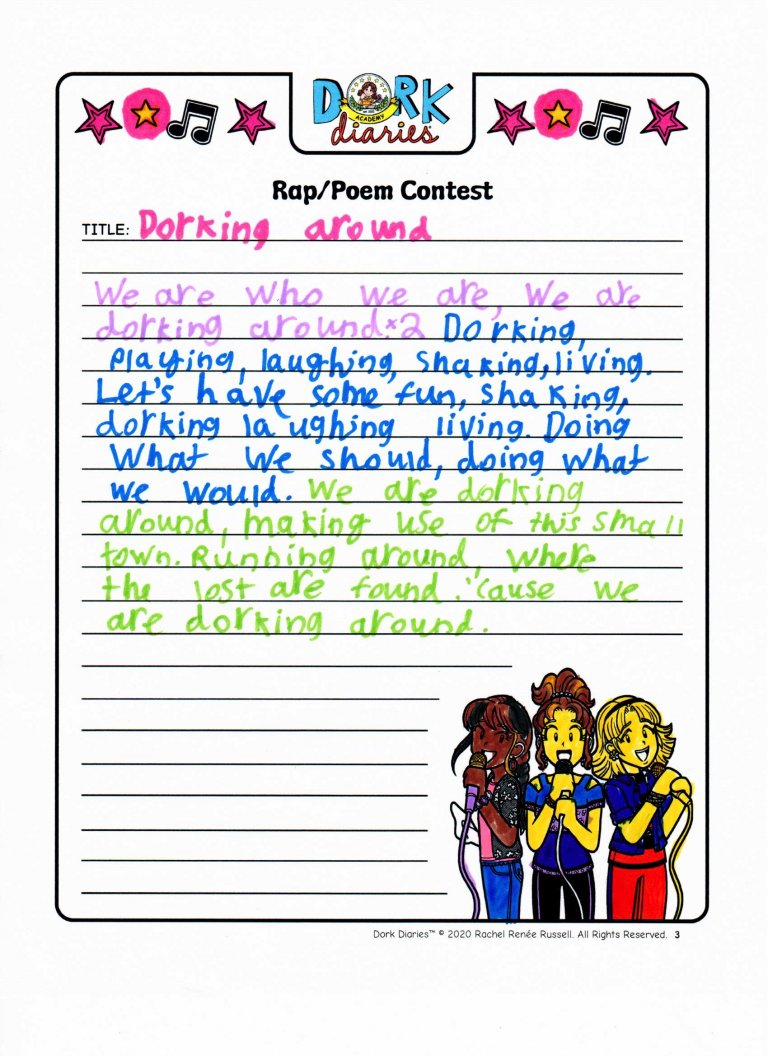 DORK
ACADEMY
diaries
Rap/Poem Contest
TITLE: Dorking around
We are who we are, We are
dorking around.×2 Dorking,
Playing, laughing, shaking, living.
Let's have some fun, shaking,
dorking laughing living. Doing
What We should, doing what
we would. We are dorking
around, making use of this small
town. Running around, where
the lost are found. 'cause we
are dorking around.
Dork Diaries™ © 2020 Rachel Renée Russell. All Rights Reserved. 3